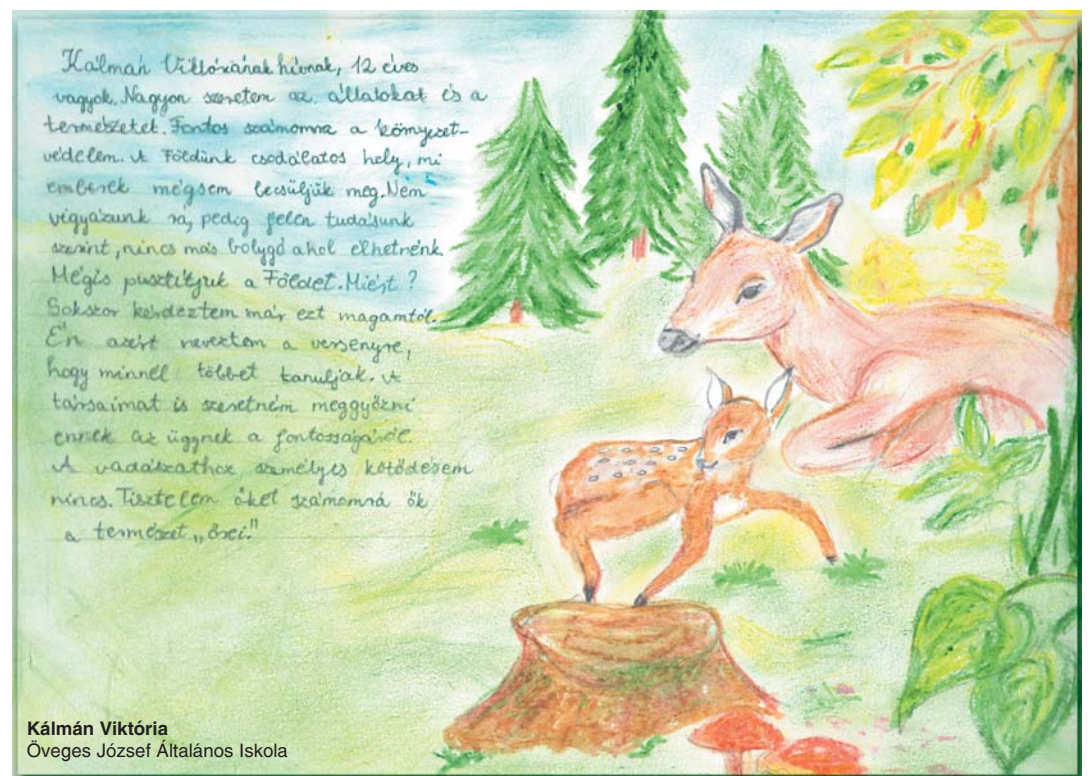 Kálmán Viktóriának hívnak, 12 éves
vagyok. Nagyon szeretem az állatokat és a
természetet. Fontos számomra a környezet-
védelem. A Földünk csodálatos hely, mi
emberek mégsem becsüljük meg. Nem
vigyázunk rá, pedig jelen tudásunk
szerint, nincs más bolygó ahol élhetnénk.
Mégis pusztítjuk a Földet. Miért?
Sokszor kérdeztem már ezt magamtól.
Én azért neveztem a versenyre,
hogy minnél többet tanuljak. A
társaimat is szeretném meggyőzni
ennek az ügynek a fontosságáról.
A vadászathoz személyes kötődésem
nincs. Tisztelem őket számomra ők
a természet „őrei."
Kálmán Viktória
Öveges József Általános Iskola